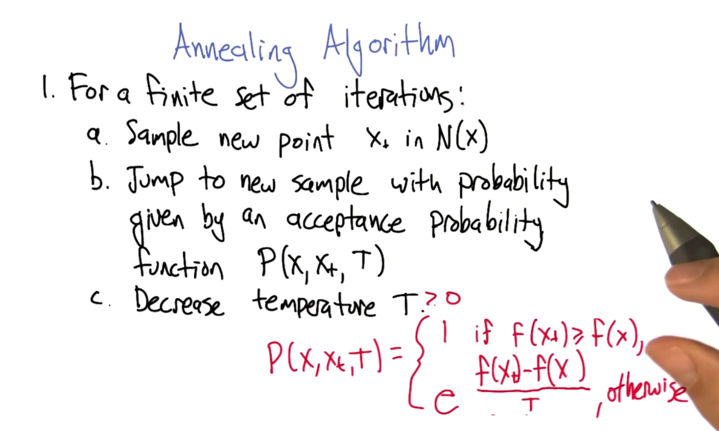 Annealing Algorithm
1. For a finite set of iterations:
a. Sample new point x₊ in N(x)
b. Jump to new sample with probability
given by an acceptance probability
function P(x, x₊, T)
c. Decrease temperature T ≥ 0
P(x, xₜ, T) = { 1 if f(x₊) ≥ f(x),
e^((f(x₊)-f(x))/T), otherwise